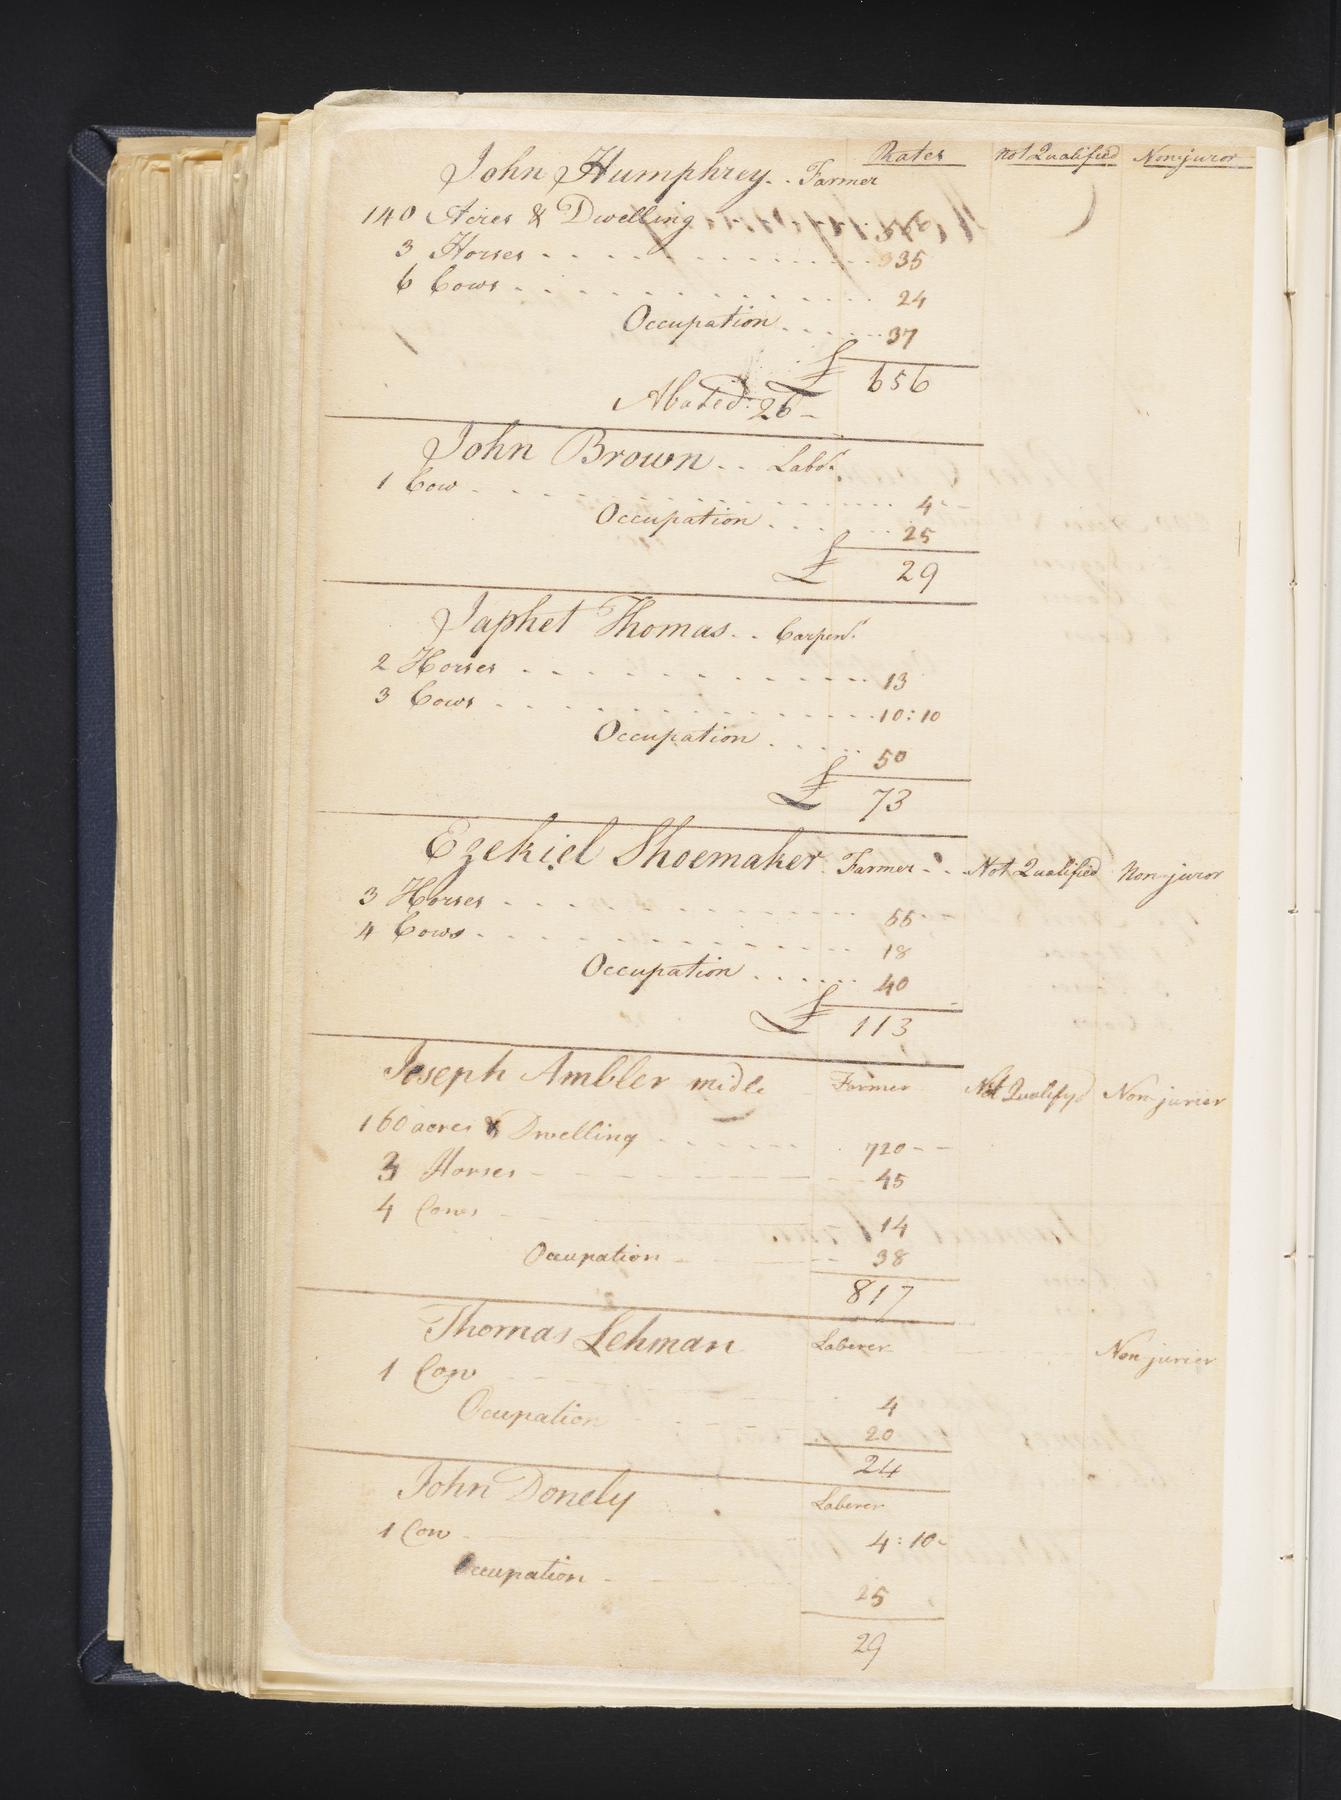 Rates not Qualified Nonjuror
John Humphrey . . Farmer
140 Acres & Dwelling
3 Horses 35
6 Cows 24
Occupation 37
£ 656
Abated: 26
John Brown . . Labr.
1 Cow 4
Occupation 25
£ 29
Japhet Thomas . . Carpentr.
2 Horses 13
3 Cows 10:10
Occupation 50
£ 73
Ezekiel Shoemaker Farmer Not Qualified Non-juror
3 Horses 55
4 Cows 18
Occupation 40
£ 113
Joseph Ambler midle Farmer Not Qualifyd Non jurier
160 acres & Dwelling 720
3 Horses 45
4 Cows 14
Occupation 38
817
Thomas Lehman Laberer Non jurier
1 Cow 4
Ocupation 20
24
John Donely Laberer
1 Cow 4:10
Occupation 25
29